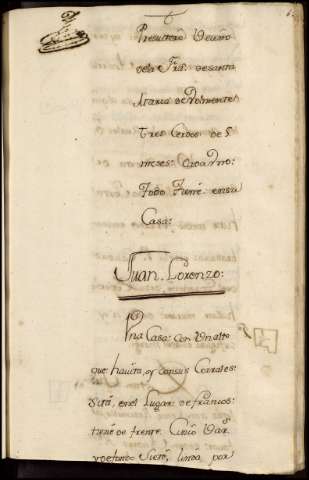 Presvitero Vecino
dela Frã. desanta
Maria de Dolmentes
Tres Cerdos de 5
meses: Cada Uno:
Todo tiene ensu
Casa:
Juan. Lorenzo:
Vna Casa: con Vnalto
que havita, y consus Corrales:
Sitã, en el Lugar de francos:
tiene de frente Cinco Var.s
y defondo Siete, linda por